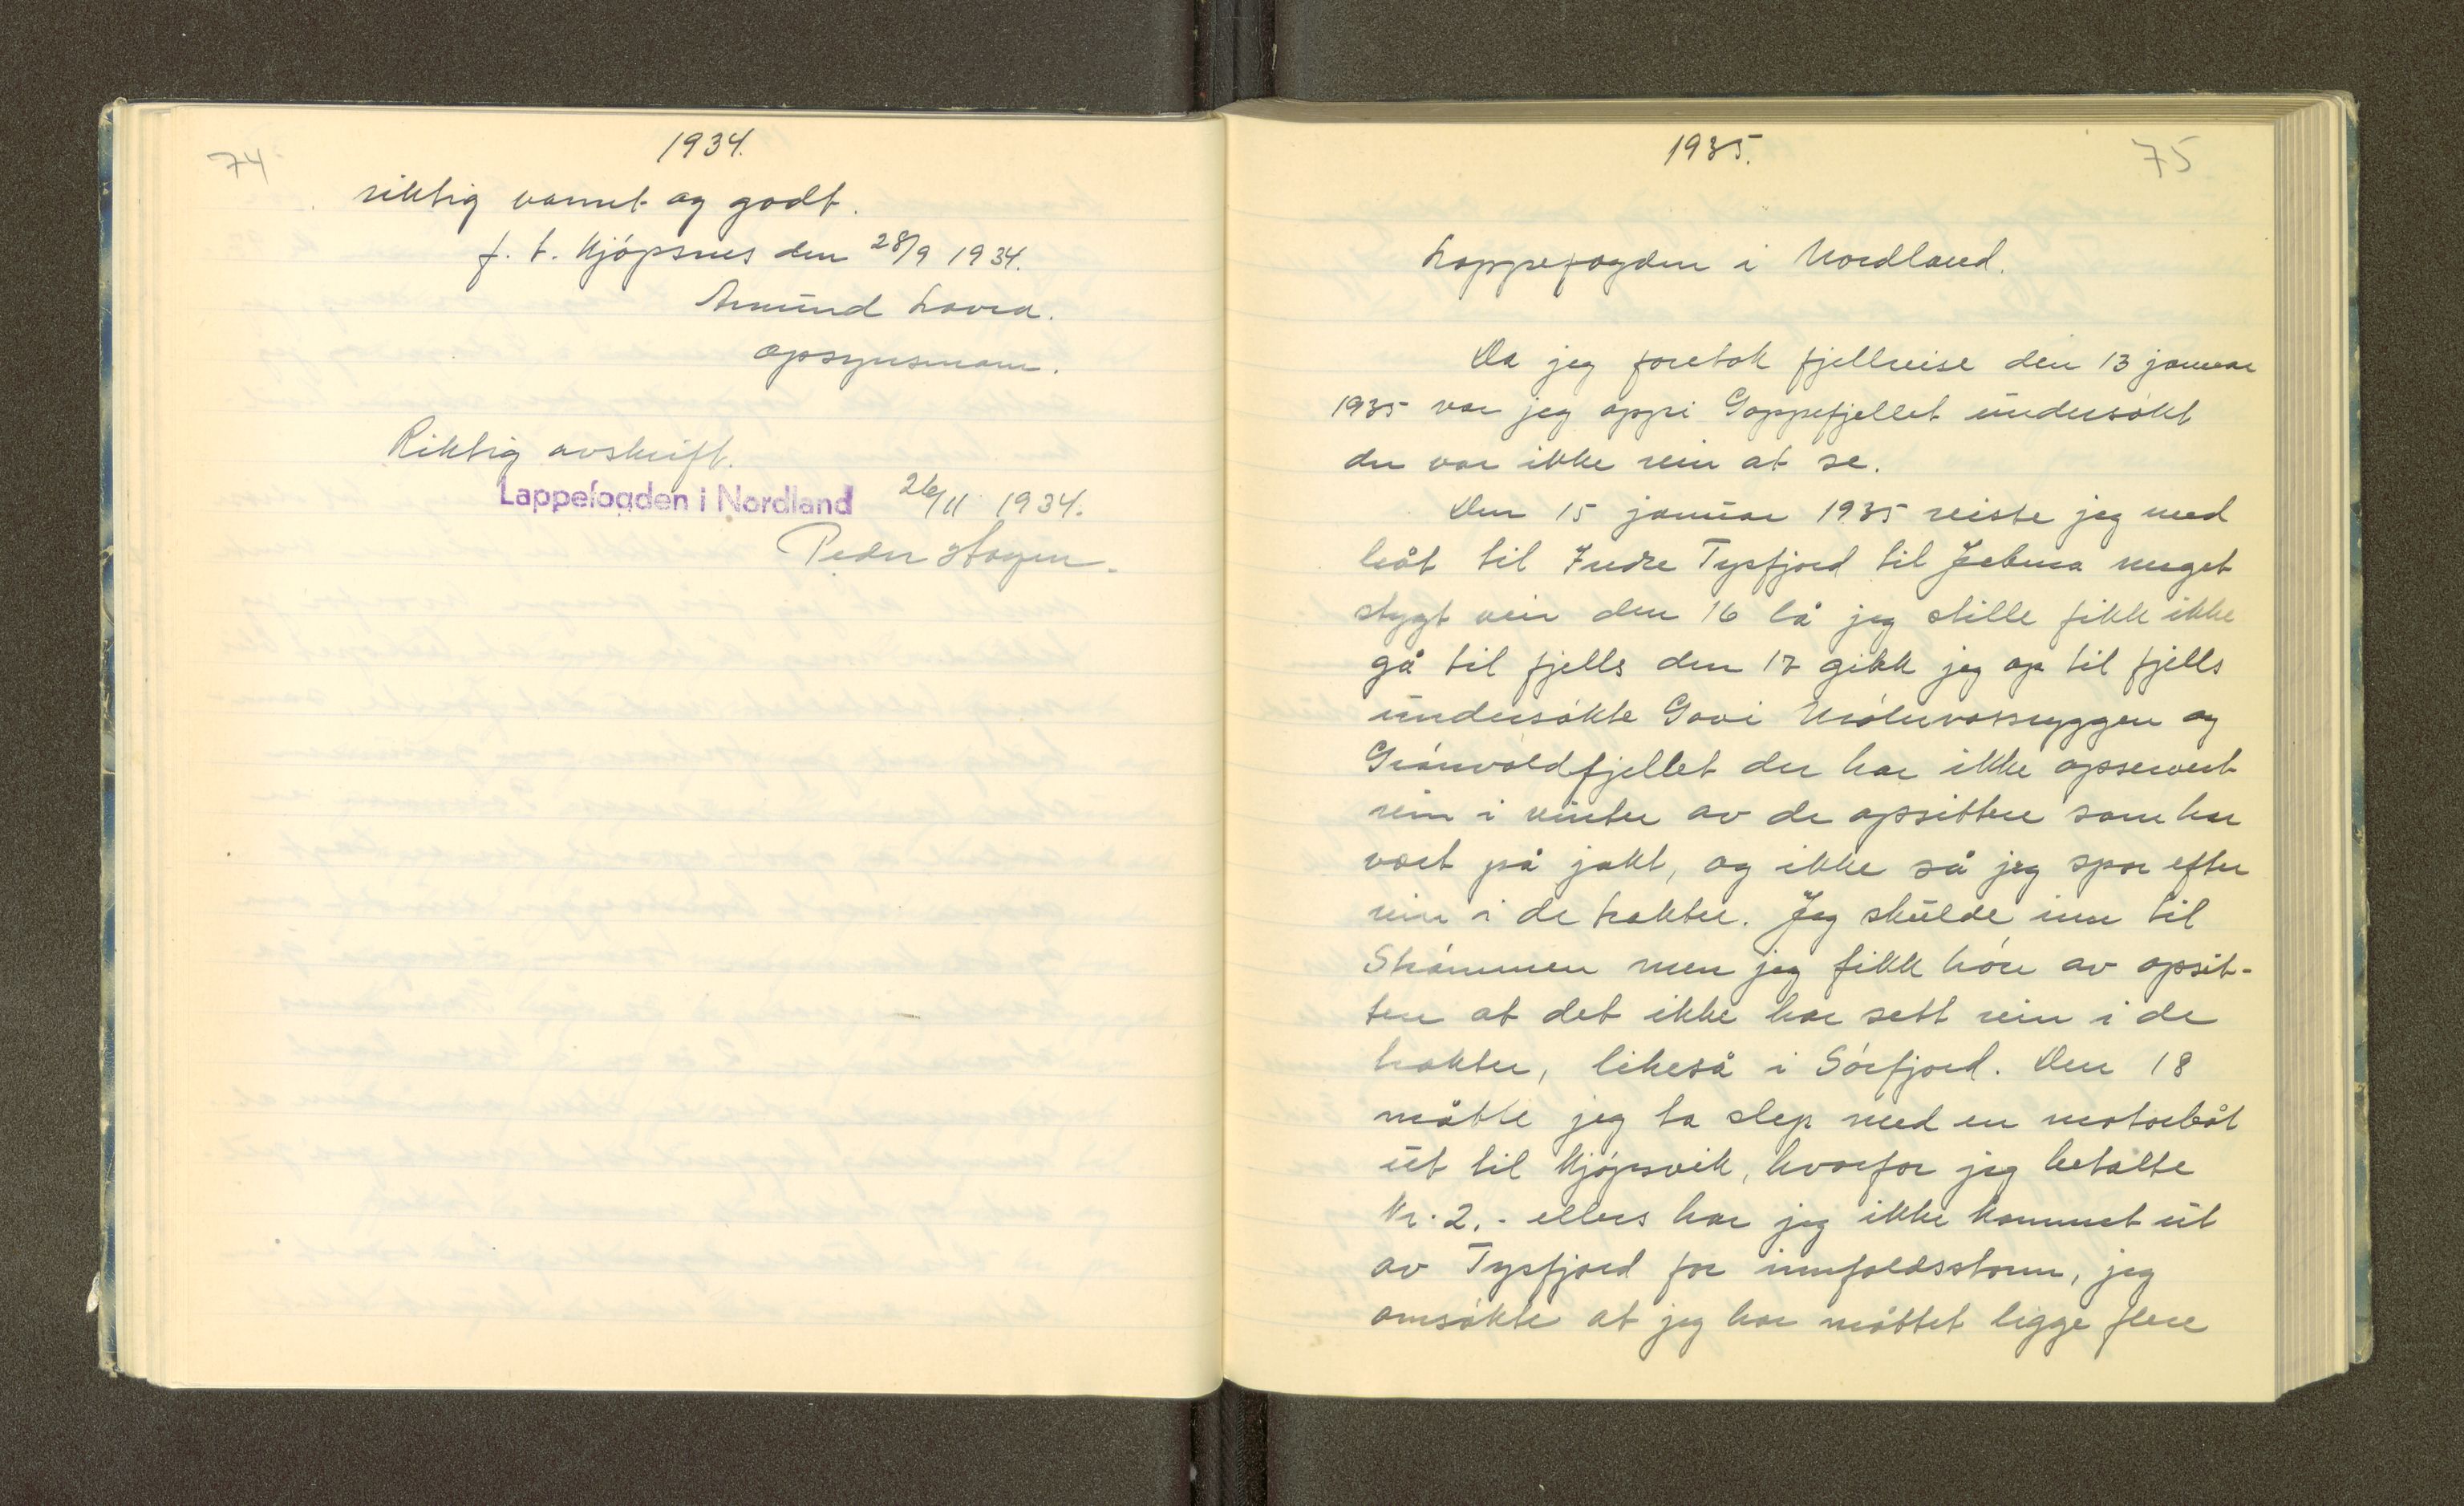 74
1934.
riktig varmt og godt.
f. t. Kjøpsnes den 28/9 1934.
Amund Lavra.
opsynsmann.
Riktig avskrift.
Lappefogden i Nordland 26/11 1934.
Peder Hagen.
1935.
75
Lappefogden i Nordland.
Da jeg foretok fjellreise den 13 januar
1935 var jeg oppi Goppefjellet undersøkt
der var ikke rein at se.
Den 15 januar 1935 reiste jeg med
båt til Indre Tysfjord til meget
stygt veir den 16 lå jeg stille fikk ikke
gå til fjells den 17 gikk jeg op til fjells
undersøkte Gavi og
Grånvoldfjellet der har ikke opservert
rein i vinter av de opsittere som har
vært på jakt, og ikke så jeg spor efter
rein i de trakter. Jeg skulde inn til
Strømmen men jeg fikk høre av opsit-
tere at det ikke har sett rein i de
trakter, likeså i Sørfjord. Den 18
måtte jeg ta slep med en motorbåt
ut til Kjøpsvik, hvorfor jeg betalte
Kr. 2.- ellers har jeg ikke kommet ut
av Tysfjord for innfaldsstorm, jeg
ansøkte at jeg har måttet ligge flere